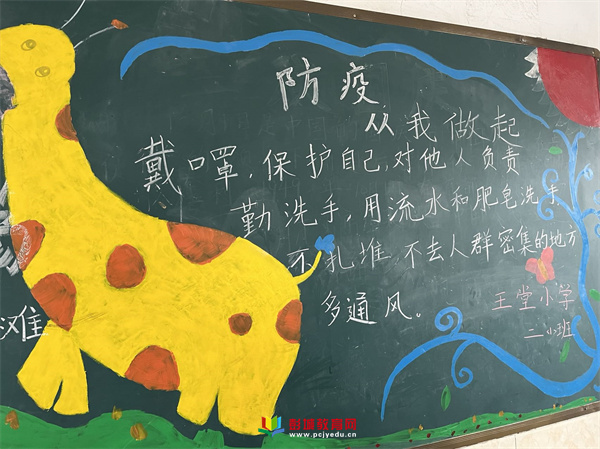 防疫
从我做起
戴口罩,保护自己,对他人负责
勤洗手,用流水和肥皂洗手
不扎堆,不去人群密集的地方
多通风。
难
王堂小学
二小班
www.pcjyedu.cn